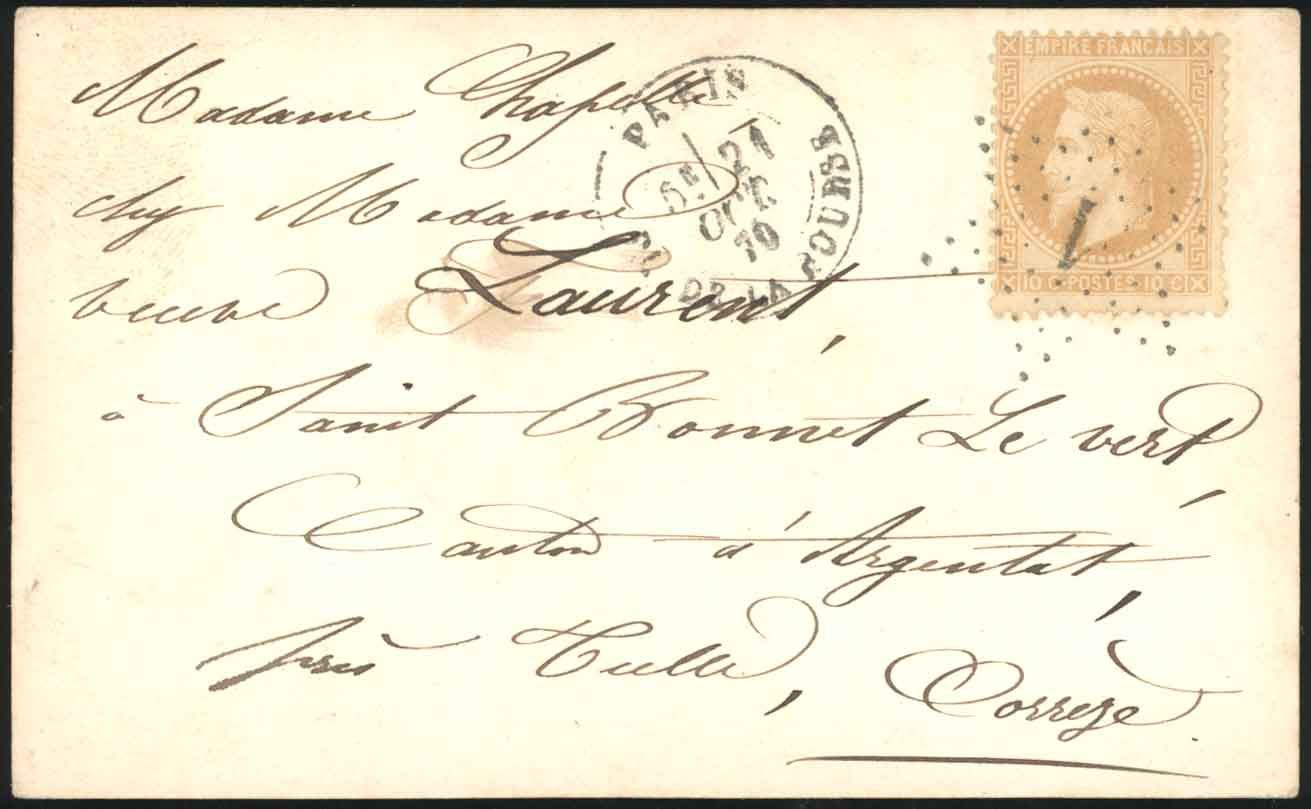 EMPIRE FRANCAIS
Madame Chapelle
PARIS
5E/ 21
OCT.
70
PL. DE LA BOURSE
chez Madame
veuve Laurent,
1
10 C POSTES 10 C
à Saint Bonnet Le vert,
Canton d'Argentat,
près Tulle, Correze.